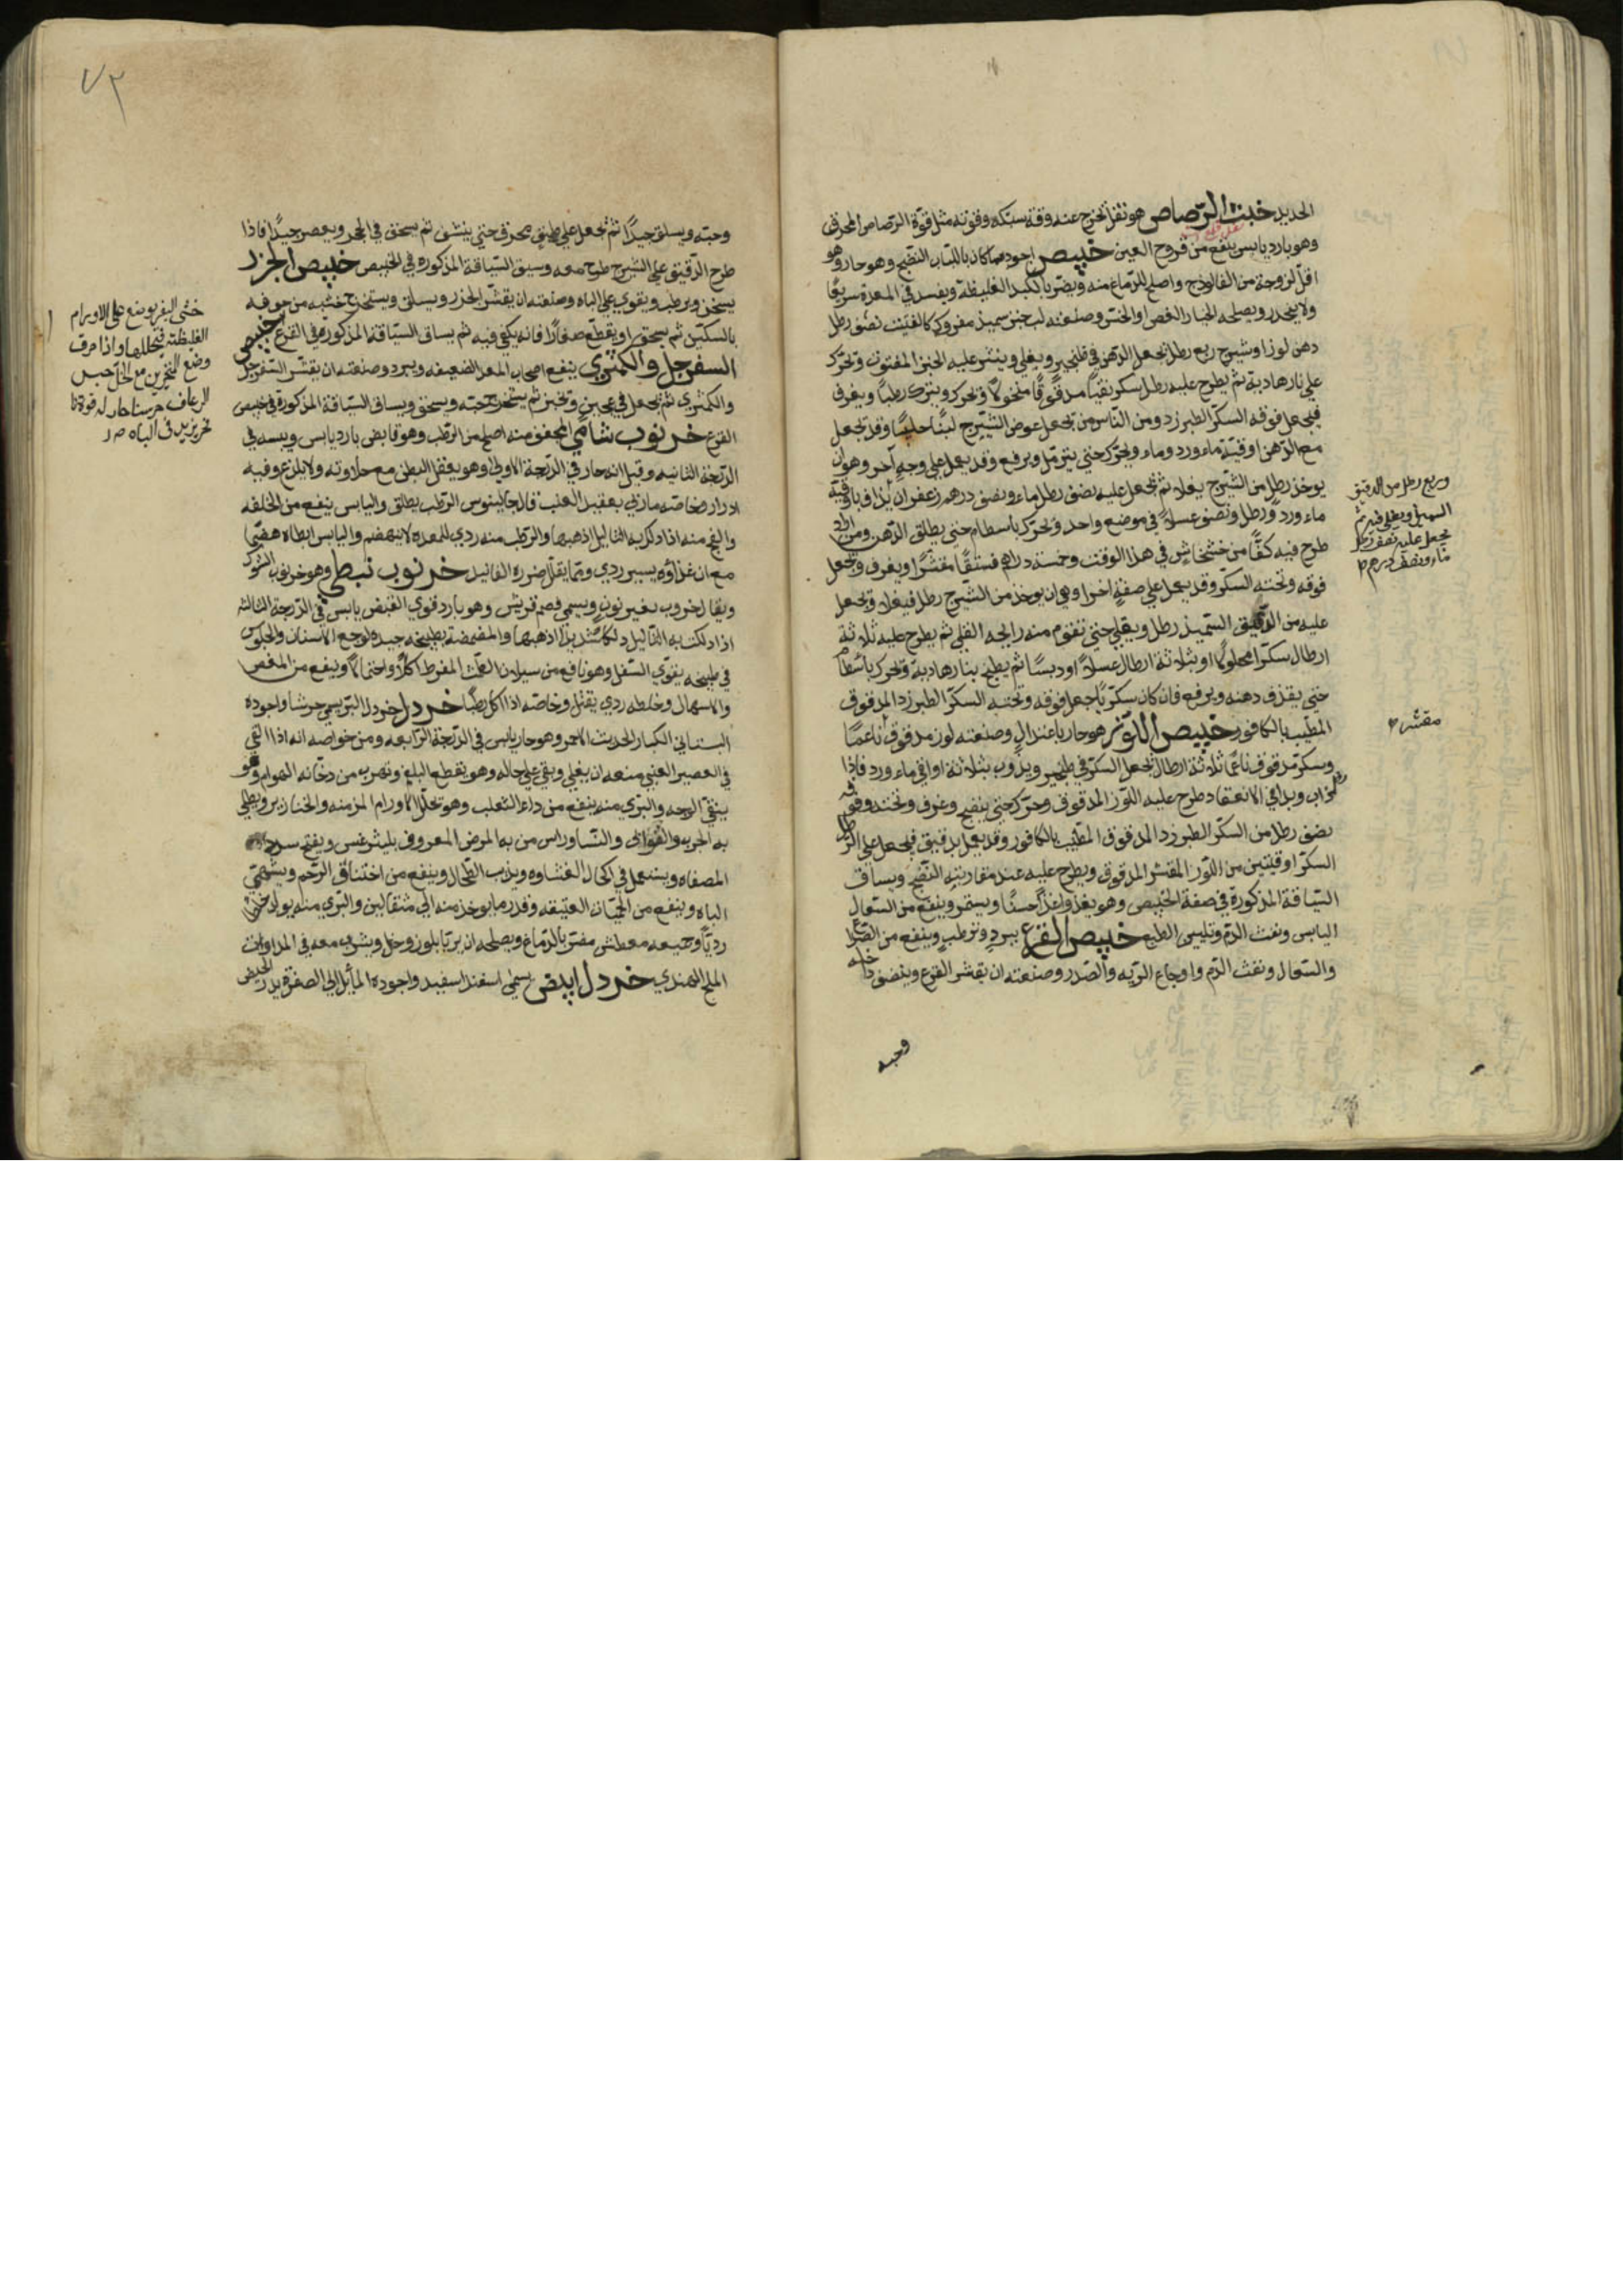 الحديد خبث الرصاص هو ثفل يخرج عنه وقت سبكه وقوته مثل قوة الرصاص المحرق
وهو بارد يابس ينفع من قروح العين خبيص اجوده ما كان باللباب النضيج وهو حار وهو
اقل لزوجة من الفالوذج واصلح للدماغ منه ويضر بالكبد الغليظة ويفسد في المعدة سريعا
ولا ينحدر ويصلحه الخيار الغض او الخس وصنعته لب خبز سميذ مفروك كالفتيت نصف رطل
دهن لوز او شيرج ربع رطل يجعل الدهن في طنجير ويغلي وينثر عليه الخبز المفتوت ويحرك
علي نار هادية ثم يطرح عليه رطل سكر نقيا مدقوقا منخولا ويحرك ويترك رطبا ويغرف
فيجعل فوقه السكر الطبرزد ومن الناس من يجعل عوض الشيرج لبنا حليبا وقد يجعل
مع الدهن اوقية ماء ورد وماء ويحرك حتي يترمل ويرفع وقد يعمل علي وجه آخر وهو ان
يوخذ رطل من الشيرج يغلا ثم يجعل عليه نصف رطل ماء ونصف درهم زعفران يذاف باوقية
ماء ورد ورطل ونصف عسلا في موضع واحد ويحرك باسطام حتي يطلق الدهن ومن اراد
طرح فيه كفا من خشخاش في هذا الوقت وخمسة دراهم فستقا مقشرا ويغرف ويجعل
فوقه وتحته السكر وقد يعمل علي صفة اخرا وهي ان يوخذ من الشيرج رطل فيغلا ويجعل
عليه من الدقيق السميذ رطل ويقلي حتي تفوح منه رايحة القلي ثم يطرح عليه ثلاثة
ارطال سكر محلولا او بثلاثة ارطال عسلا او دبسا ثم يطبخ بنار هادية ويحرك باسطام
حتي يقذف دهنه ويرفع فان كان سكريا جعل فوقه وتحته السكر الطبرزد المدقوق
المطيب بالكافور خبيص اللوز هو حار باعتدال وصنعته لوز مدقوق ناعما
وسكر مدقوق ناعما ثلاثة ارطال يجعل السكر في طنجير ويذوب بثلاثة اواقي ماء ورد فاذا
ذاب وبدا في الانعقاد طرح عليه اللوز المدقوق وحرك حتي ينضج وغرف وتحته وفوقه
نصف رطل من السكر الطبرزد المدقوق المطيب بالكافور وقد يعمل بدقيق فيجعل علي الرطل
السكر اوقيتين من اللوز المقشر المدقوق ويطرح عليه عند مقاربته النضج ويساق
السياقة المذكورة في صفة الخبيص وهو يغذو غذا حسنا ويسمن وينفع من السعال
اليابس ونفث الدم وتليين الطبع خبيص القرع يبرد ويرطب وينفع من الصفرا
والسعال ونفث الدم واوجاع الريه والصدر وصنعته ان يقشر القرع وينضف داخله
وحبه
وربع رطل من الدقيق
السميذ ويغلي فيه ثم
يجعل عليه نصف رطل
ماء ونصف درهم
مقشر
٧٢
وحبه ويسلق جيدا ثم يجعل علي طبق حتي ينشف ثم يسحق في الحجر ويعصر جيدا فاذا
طرح الدقيق علي الشيرج طرح معه وسيق السياقة المذكوره في الخبيص خبيص الجزر
يسخن ويرطب ويقوي علي الباه وصنعته ان يقشر الجزر ويسلق ويستخرج خشبه من جوفه
بالسكين ثم يسحق او يقطع صغارا فانه يكفي فيه ثم يساق السياقة المذكورة في القرع خبيص
السفرجل والكمثري ينفع اصحاب المعد الضعيفه ويبرد وصنعته ان يقشر السفرجل
والكمثري ثم يجعل في عجين ويخبز ثم يستخرج حبه ويسحق ويساق السياقة المذكورة في خبيص
القرع خرنوب شامي المجفف منه اصلح من الرطب وهو قابض بارد يابس ويبسه في
الدرجة الثانيه وقيل انه حار في الدرجة الاولي وهو يعقل البطن مع حلاوته ولا يلذع وفيه
ادرار خاصته ما ربي بعقيد العنب قال جالينوس الرطب يطلق واليابس ينفع من الخلفه
والفج منه اذا دلك به الثاليل اذهبها والرطب منه ردي للمعده لا ينهضم واليابس ابطاه هضما
مع ان غذاؤه يسير ردي ومما يقلل ضرره الفانيد خرنوب نبطي وهو خرنوب الشوك
ويقال خروب بغير نون ويسمي قضم قريش وهو بارد قوي القبض يابس في الدرجة الثالثه
اذا دلكت به الثاليل دلكا شديدا اذهبها والمضمضة بطبيخه جيده لوجع الاسنان والجلوس
في طبيخه يقوي السفل وهو نافع من سيلان الطمث المفرط اكلا وتحملا وينفع من المغص
والاسهال وخلطه ردي يقتل وخاصه اذا اكل رطبا خردل خردل البري يسمي حرشا واجوده
البستاني الكبار الحديث الاحمر وهو حار يابس في الدرجة الرابعه ومن خواصه انه اذا القي
في العصير العنبي منعه ان يغلي وبقي علي حاله وهو يقطع البلغم وتهرب من دخانه الهوام وهو
ينقي الوجه والبري منه ينفع من داء الثعلب وهو يحلل الاورام المزمنه والخنازير ويطلي
به الجرب والقوابي والنسا وراس من به المرض المعروف بليثرغس ويفتح سدد
المصفاه ويستعمل في اكحال الغشاوه ويذيب الطحال وينفع من اختناق الرحم ويشهي
الباه وينفع من الحميات العتيقه وقدر ما يوخذ منه الي مثقالين والبري منه يولد خلطا
رديا وجميعه معطش مضر بالدماغ ويصلحه ان يربا بلوز وخل ويشرب معه في المداوات
الملح الهندي خردل ابيض يسمي اسفند اسفيد واجوده المايل الي الصفرة يدر الحيض
خثى البقر يوضع على الاورام
الغليظة فيحللها واذا حرق
وضع المنخرين مع الخل حبس
الرعاف
تزيد في الباه